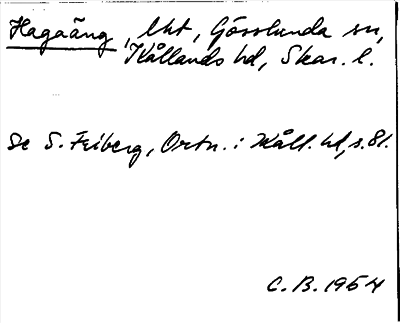 Hagaäng, lht, Gösslunda sn,
Kållands hd, Skar. l.
Se S. Friberg, Ortn. i Kåll. hd, s. 81.
C. B. 1954